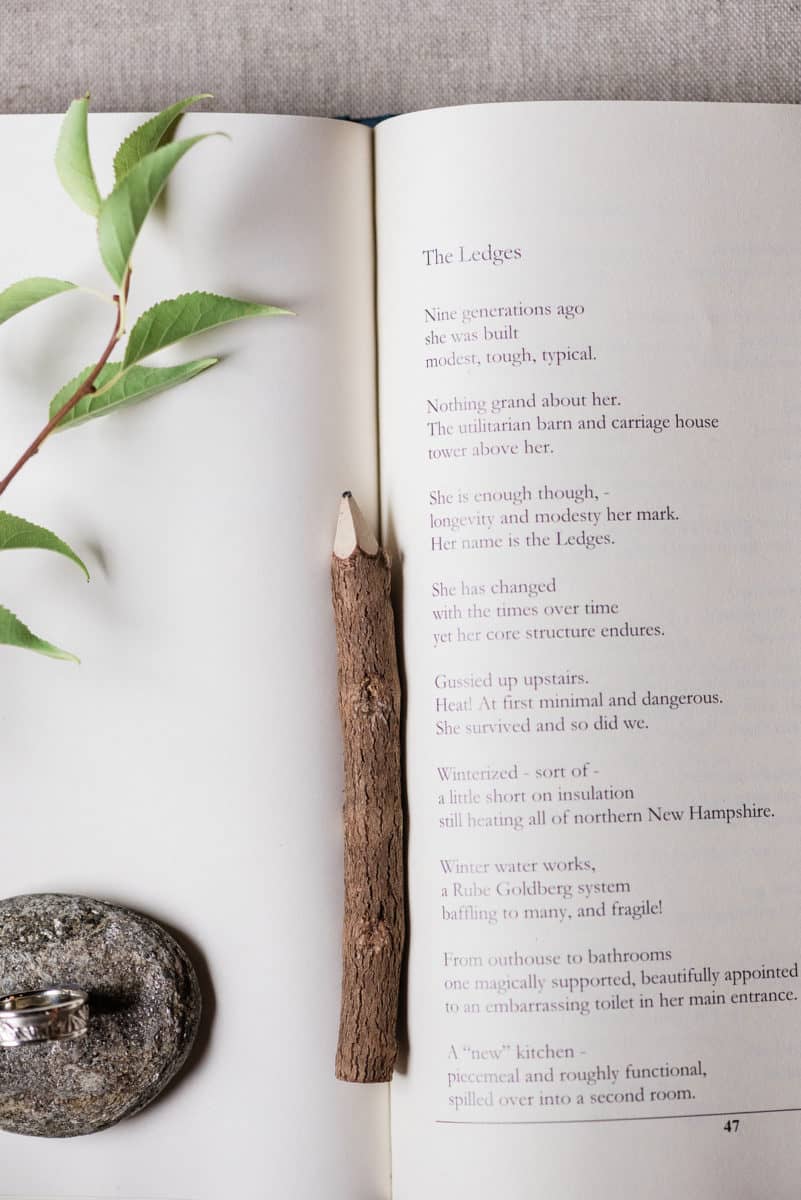 The Ledges
Nine generations ago
she was built
modest, tough, typical.
Nothing grand about her.
The utilitarian barn and carriage house
tower above her.
She is enough though, -
longevity and modesty her mark.
Her name is the Ledges.
She has changed
with the times over time
yet her core structure endures.
Gussied up upstairs.
Heat! At first minimal and dangerous.
She survived and so did we.
Winterized - sort of -
a little short on insulation
still heating all of northern New Hampshire.
Winter water works,
a Rube Goldberg system
baffling to many, and fragile!
From outhouse to bathrooms
one magically supported, beautifully appointed
to an embarrassing toilet in her main entrance.
A “new” kitchen -
piecemeal and roughly functional,
spilled over into a second room.
47